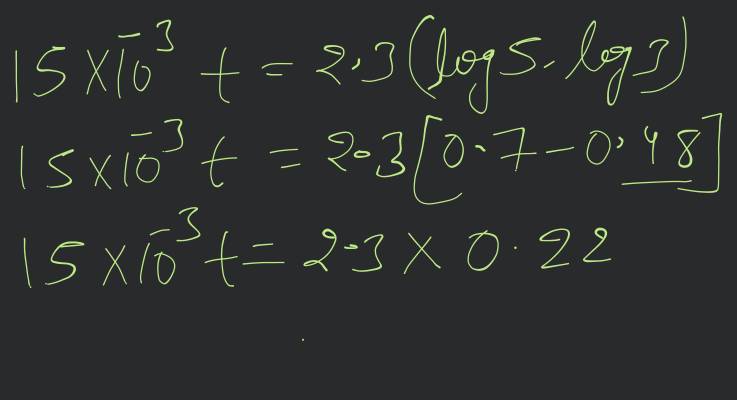 15 × 10⁻³ t = 2.3 (log 5 - log 3)
15 × 10⁻³ t = 2.3 [0.7 - 0.48]
15 × 10⁻³ t = 2.3 × 0.22